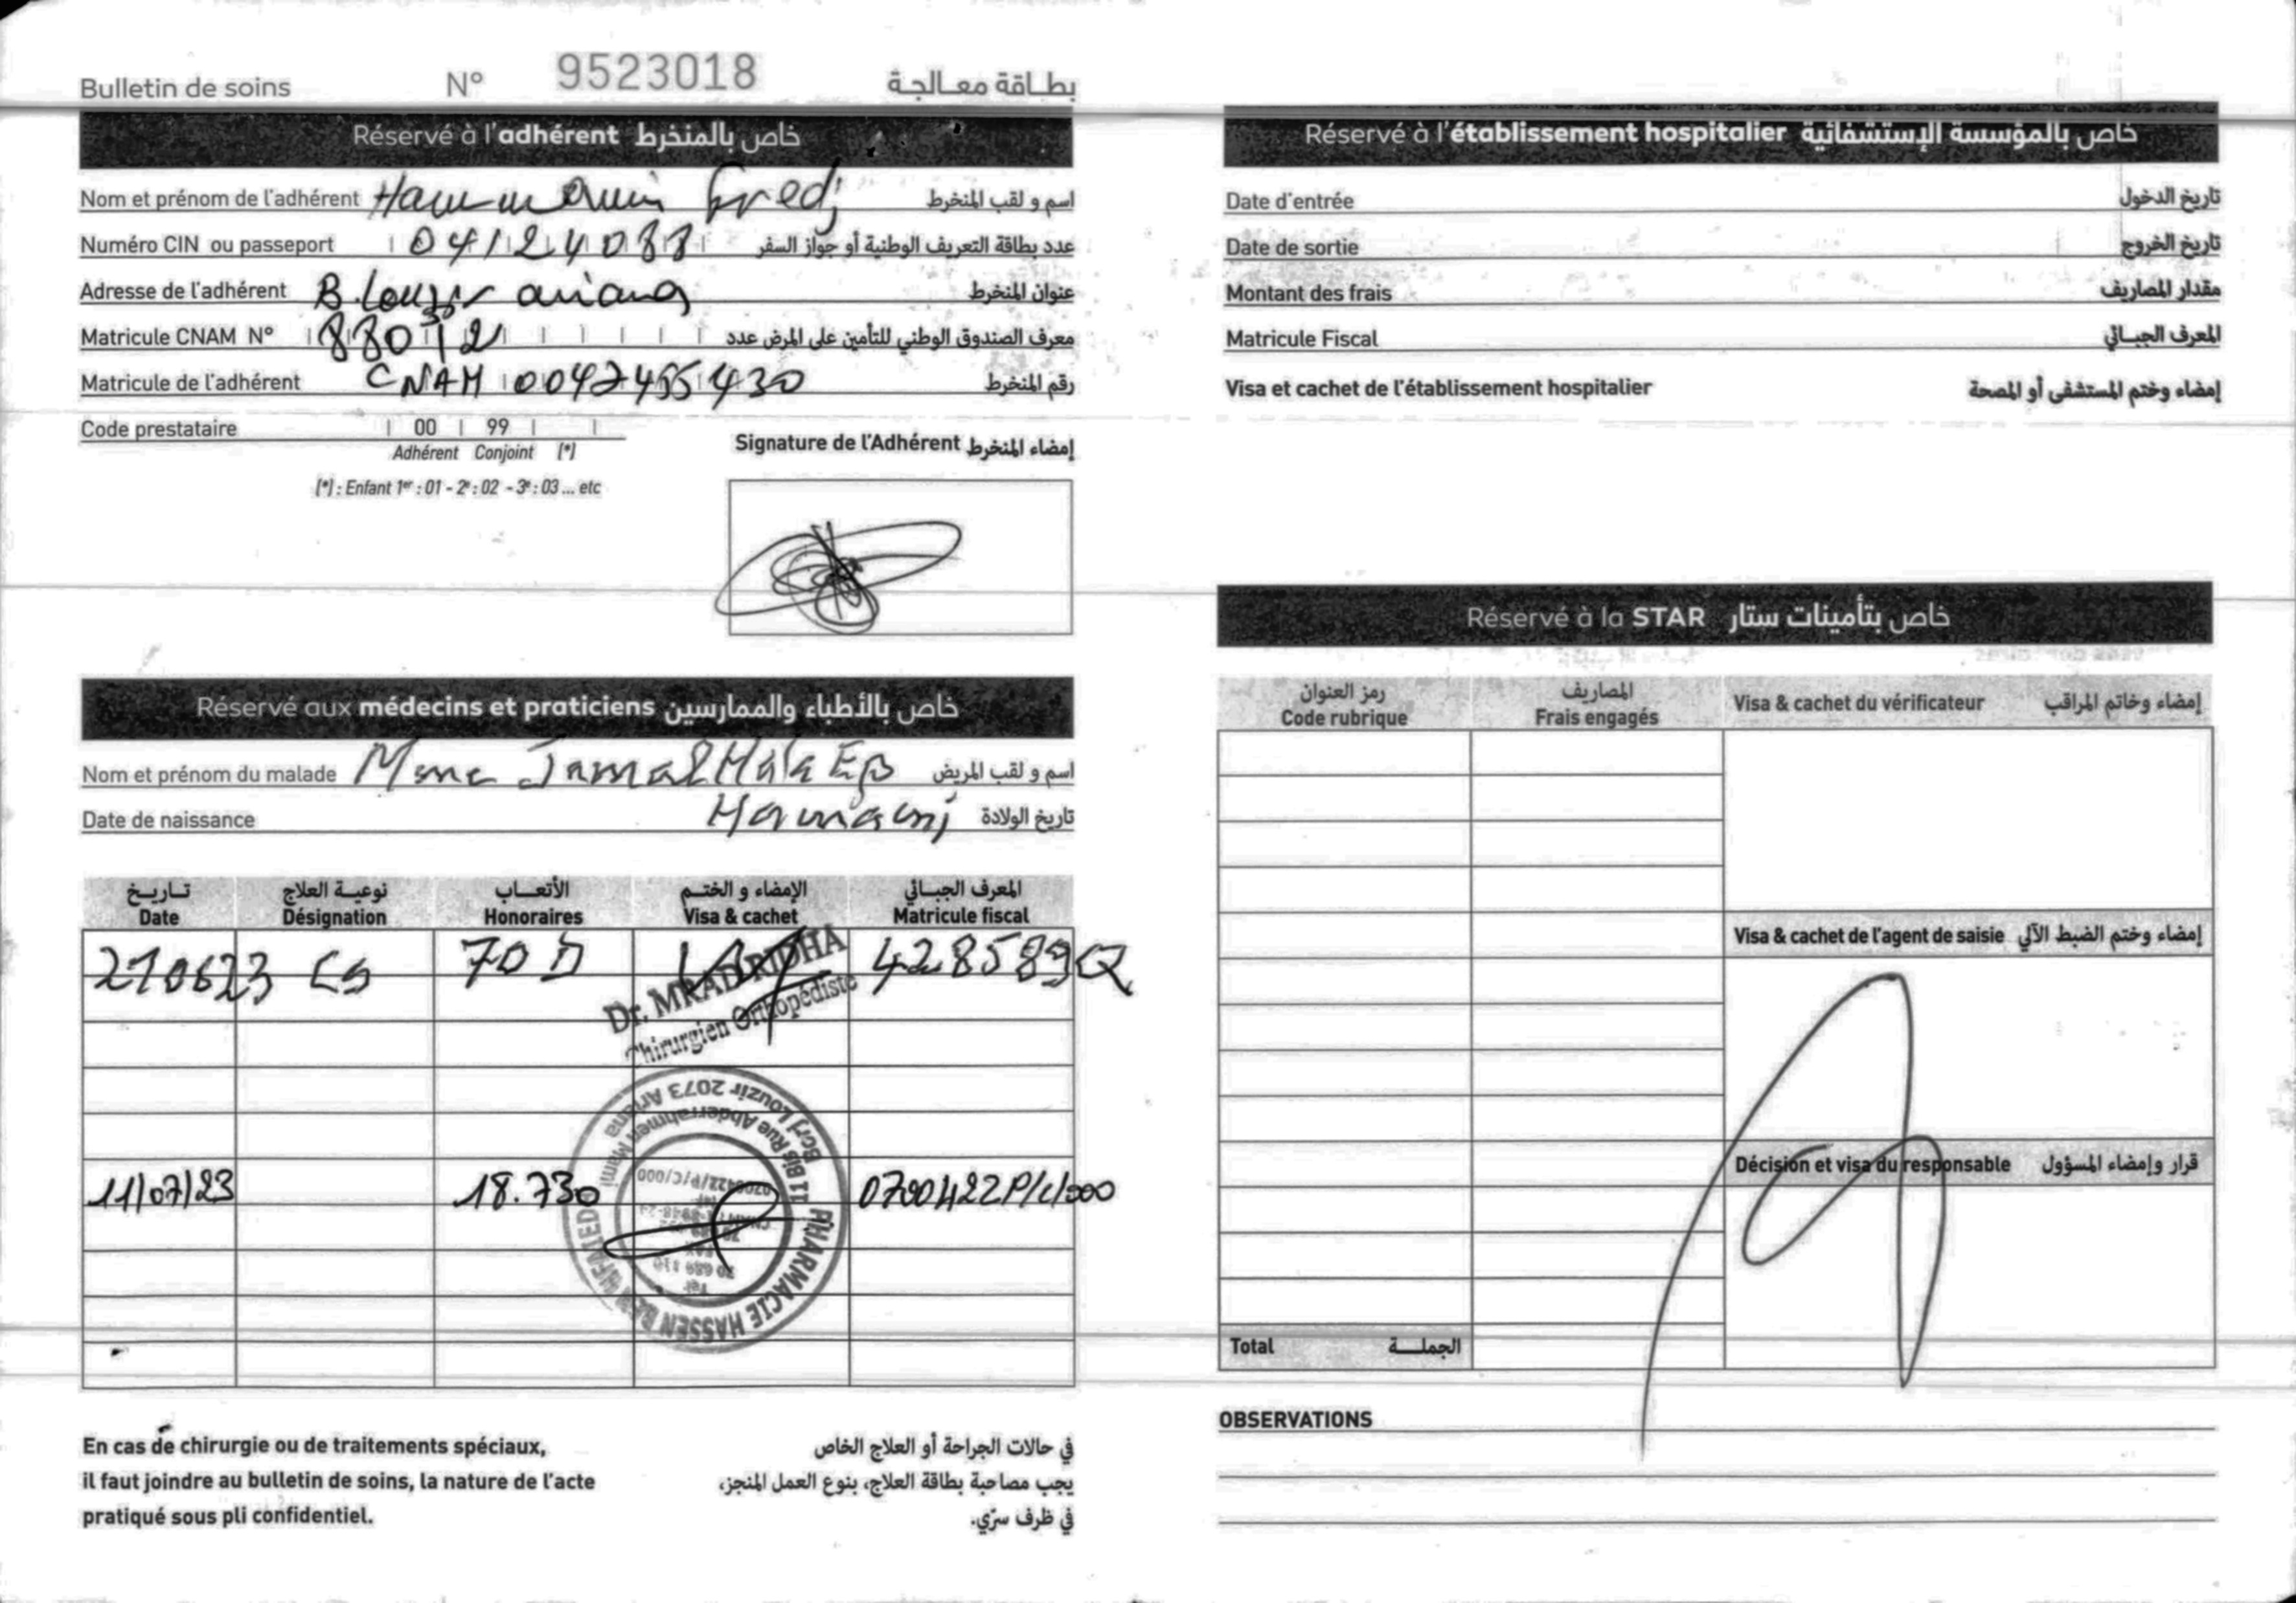 Bulletin de soins N° 9523018 بطاقة معالجة
Réservé à l'adhérent خاص بالمنخرط
Nom et prénom de l'adhérent اسم و لقب المنخرط
Numéro CIN ou passeport 04124088 عدد بطاقة التعريف الوطنية أو جواز السفر
Adresse de l'adhérent B. Louzir ariana عنوان المنخرط
Matricule CNAM N° معرف الصندوق الوطني للتأمين على المرض عدد
Matricule de l'adhérent CNAM رقم المنخرط
Code prestataire 00 99
Adhérent Conjoint (*)
(*) : Enfant 1er : 01 - 2e : 02 - 3e : 03 ... etc
Signature de l'Adhérent إمضاء المنخرط
Réservé aux médecins et praticiens خاص بالأطباء والممارسين
Nom et prénom du malade Mme Jamal Hala Ep اسم و لقب المريض
Date de naissance تاريخ الولادة
تاريخ نوعية العلاج الأتعاب الإمضاء و الختم المعرف الجبائي
Date Désignation Honoraires Visa & cachet Matricule fiscal
210623 Cs 70 D 428589Q
Dr. MRAD RIDHA
Chirurgien Orthopédiste
11/07/23 18.730 0700422P/C/000
PHARMACIE HASSEN BEN
11 BIS Rue Abderrahmen Mami
Borj Louzir 2073 Ariana
En cas de chirurgie ou de traitements spéciaux,
il faut joindre au bulletin de soins, la nature de l'acte
pratiqué sous pli confidentiel.
في حالات الجراحة أو العلاج الخاص
يجب مصاحبة بطاقة العلاج، بنوع العمل المنجز،
في ظرف سرّي.
Réservé à l'établissement hospitalier خاص بالمؤسسة الإستشفائية
Date d'entrée تاريخ الدخول
Date de sortie تاريخ الخروج
Montant des frais مقدار المصاريف
Matricule Fiscal المعرف الجبائي
Visa et cachet de l'établissement hospitalier إمضاء وختم المستشفى أو المصحة
Réservé à la STAR خاص بتأمينات ستار
رمز العنوان المصاريف
Code rubrique Frais engagés Visa & cachet du vérificateur إمضاء وخاتم المراقب
Visa & cachet de l'agent de saisie إمضاء وختم الضبط الآلي
Décision et visa du responsable قرار وإمضاء المسؤول
Total الجملة
OBSERVATIONS